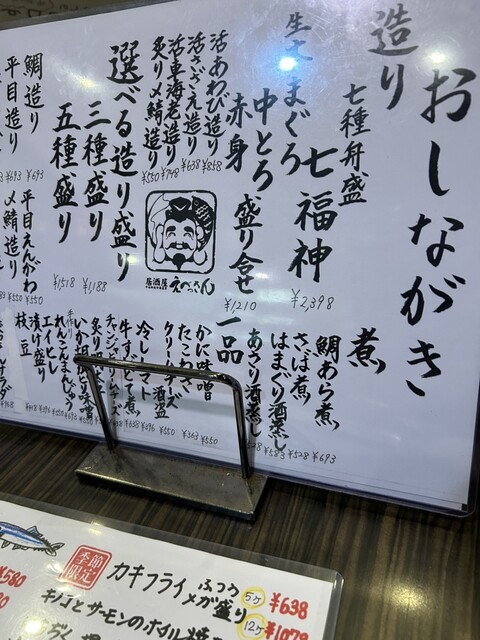 おしながき
造り
七種舟盛
七福神
¥2,398
生本まぐろ
中とろ
赤身
盛り合せ
¥1,210
活あわび造り
¥858
活さざえ造り
¥638
活車海老造り
¥748
炙り〆鯖造り
¥550
選べる造り盛り
三種盛り
¥1,188
五種盛り
¥1,518
鯛造り
¥693
平目造り
¥693
平目えんがわ
¥550
〆鯖造り
¥550
居酒屋
えべっさん
煮
鯛あら煮
¥693
さば煮
¥528
はまぐり酒蒸し
¥583
あさり酒蒸し
一品
かに味噌
¥550
たこわさ
¥363
クリームチーズ酒盗
¥550
冷しトマト
牛すじどて煮
チャンジャ
れんこんまんじゅう
エイヒレ
漬け盛り
枝豆
季節限定
カキフライ
ふつう
5ヶ
¥638
メガ盛り
12ヶ
キノコとサーモンのホイル焼
¥580